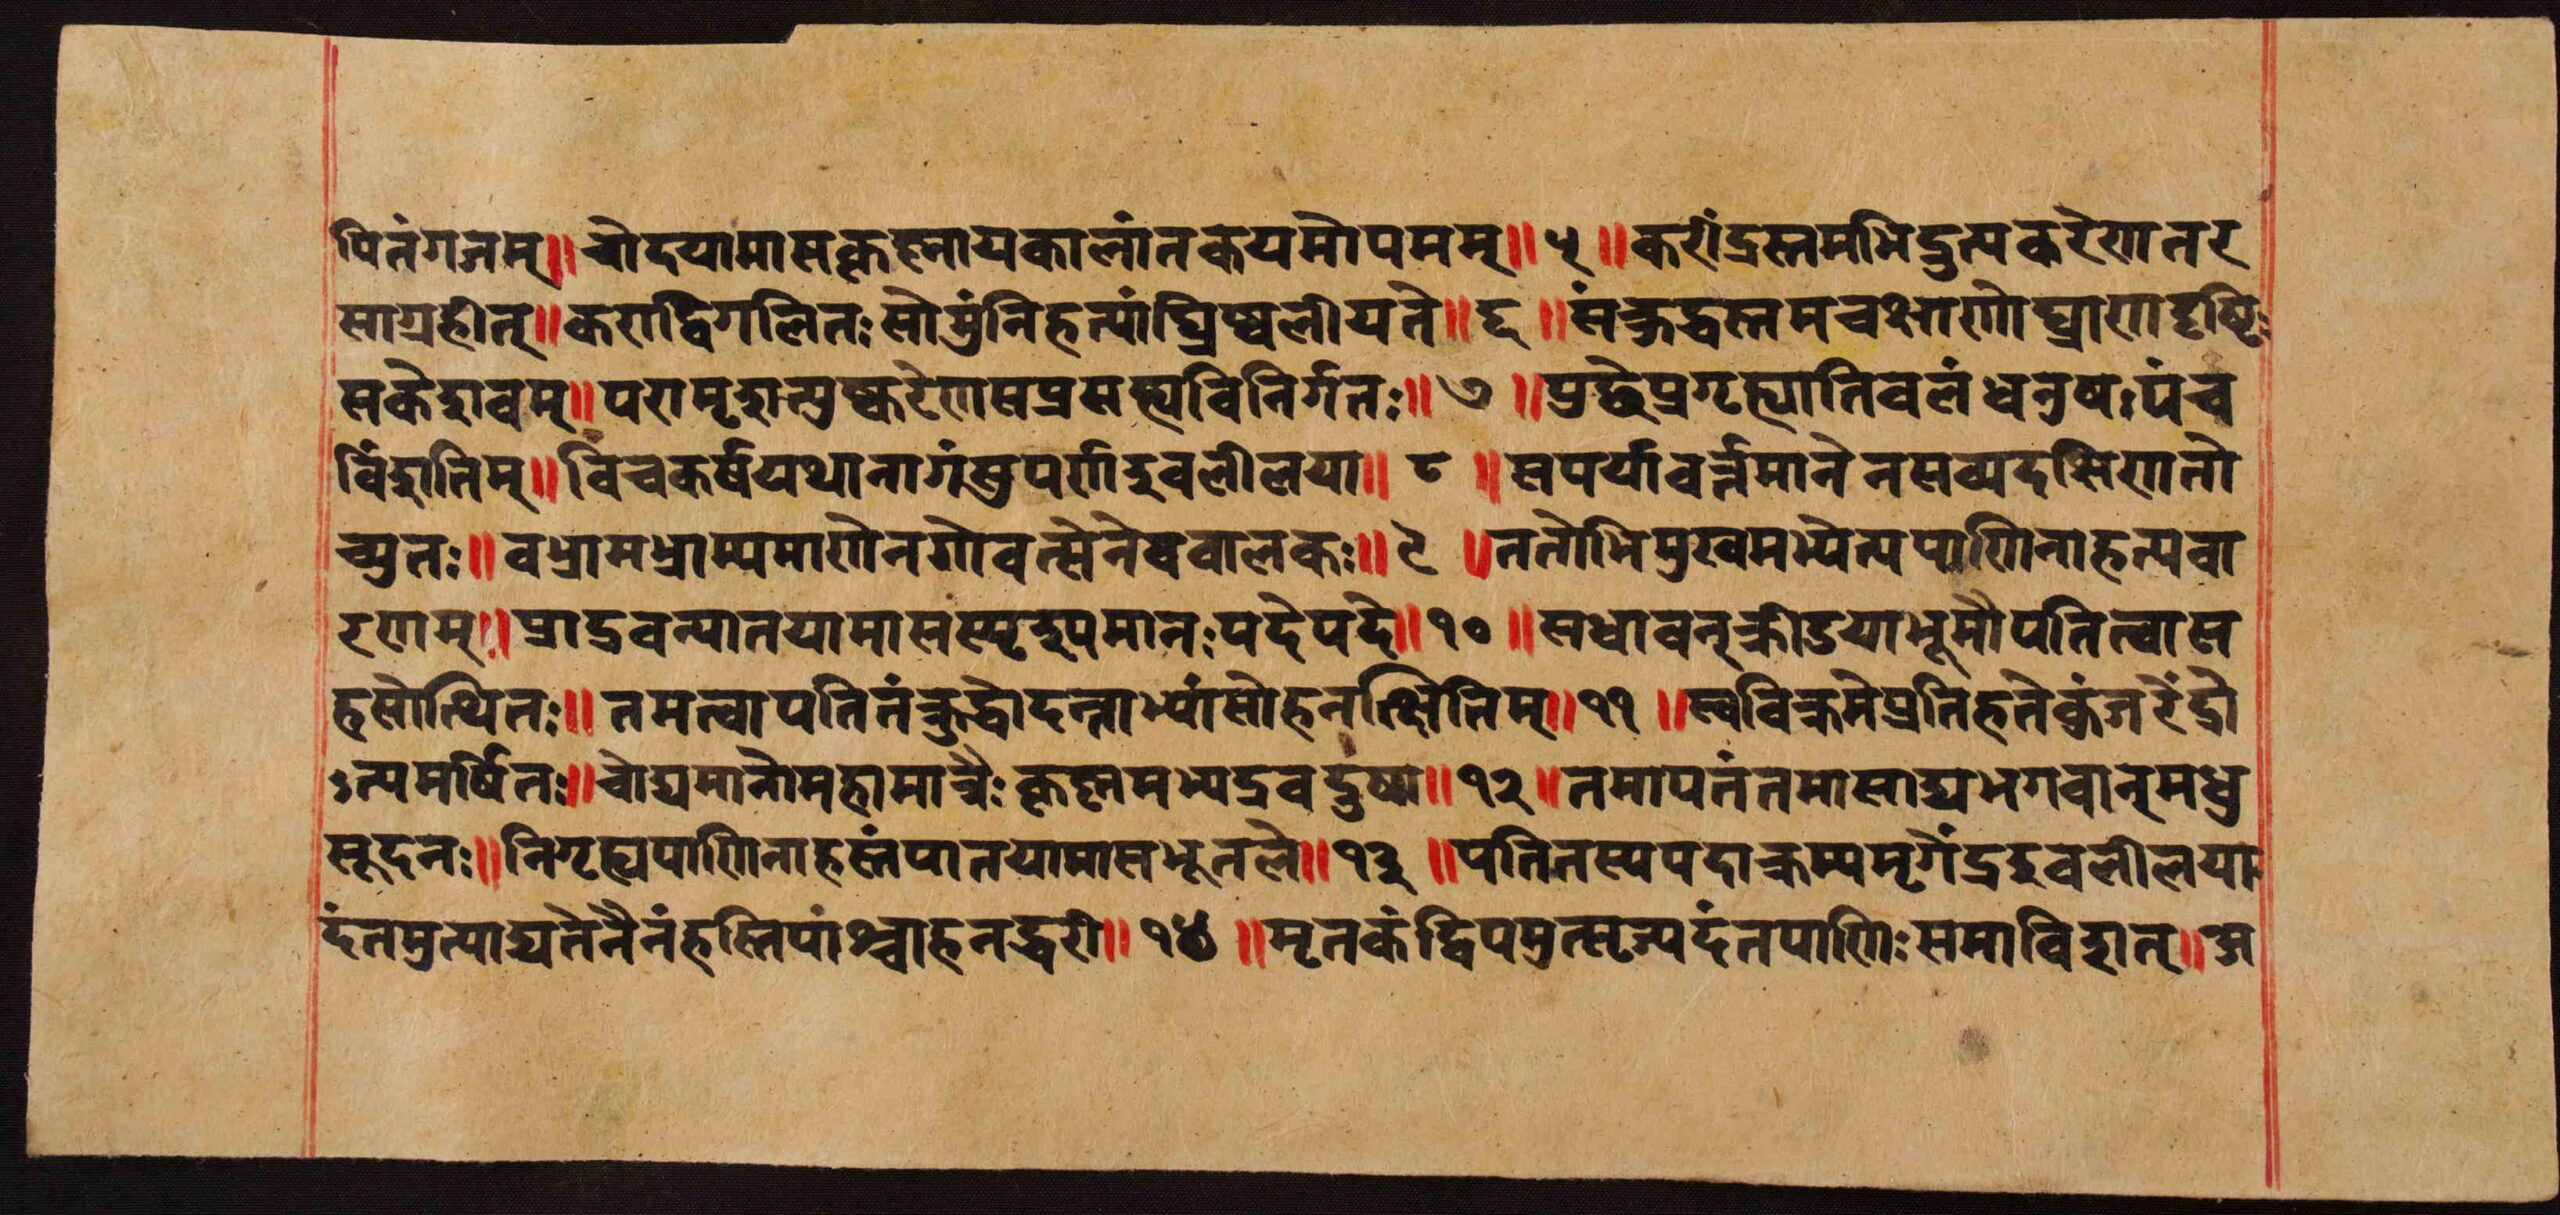 पितंगजम्॥चोदयामासकृष्णायकालांतकयमोपमम्॥५॥करींद्रस्तमभिद्रुत्यकरेणातर
साग्रहीत्॥कराद्विगलितःसोमुंनिहत्यांघ्रिष्वलीयते॥६॥संक्रुद्धस्तमचक्षाणोघ्राणादृष्टिः
सकेशवम्॥परामृशत्पुष्करेणसप्रसह्यविनिर्गतः॥७॥पुछेप्रगृह्यातिवलंधनुषःपंच
विंशतिम्॥विचकर्षयथानागंसुपर्णइवलीलया॥८॥सपर्यावर्त्तमानेनसव्यदक्षिणतो
च्युतः॥वभ्रामभ्राम्यमाणेनगोवत्सेनेववालकः॥९॥ततोभिमुखमभ्येत्यपाणिनाहत्यवा
रणम्॥प्राद्रवन्पातयामासस्पृश्यमानःपदेपदे॥१०॥सधावन्क्रीडयाभूमौपतित्वास
हसोत्थितः॥तमत्वापतितंक्रुद्धोदन्ताभ्यांसोहनत्क्षितिम्॥११॥स्वविक्रमेप्रतिहतेकुंजरेंद्रो
ऽत्यमर्षितः॥चोद्यमानोमहामात्रैःकृष्णमभ्यद्रवद्रुषा॥१२॥तमापतंतमासाद्यभगवान्मधु
सूदनः॥निगृह्यपाणिनाहस्तंपातयामासभूतले॥१३॥पतितस्यपदाक्रम्यमृगेंद्रइवलीलया
दंतमुत्पाद्यतेनैनंहस्तिपांश्चाहनद्धरी॥१४॥मृतकंद्विपमुत्सृज्यदंतपाणिःसमाविशत्॥अ